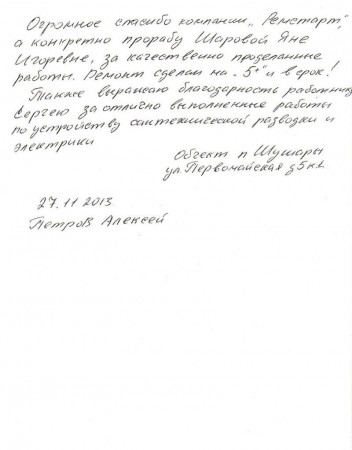 Огромное спасибо компании „Ремстарт",
а конкретно прорабу Шаровой Яне
Игоревне, за качественно проделанные
работы. Ремонт сделан на „5+" и в срок!
Также выражаю благодарность работнику
Сергею за отлично выполненные работы
по устройству сантехнической разводки и
электрики
Объект п Шушары
ул. Первомайская д 5 к.1
27.11 2013
Петров Алексей